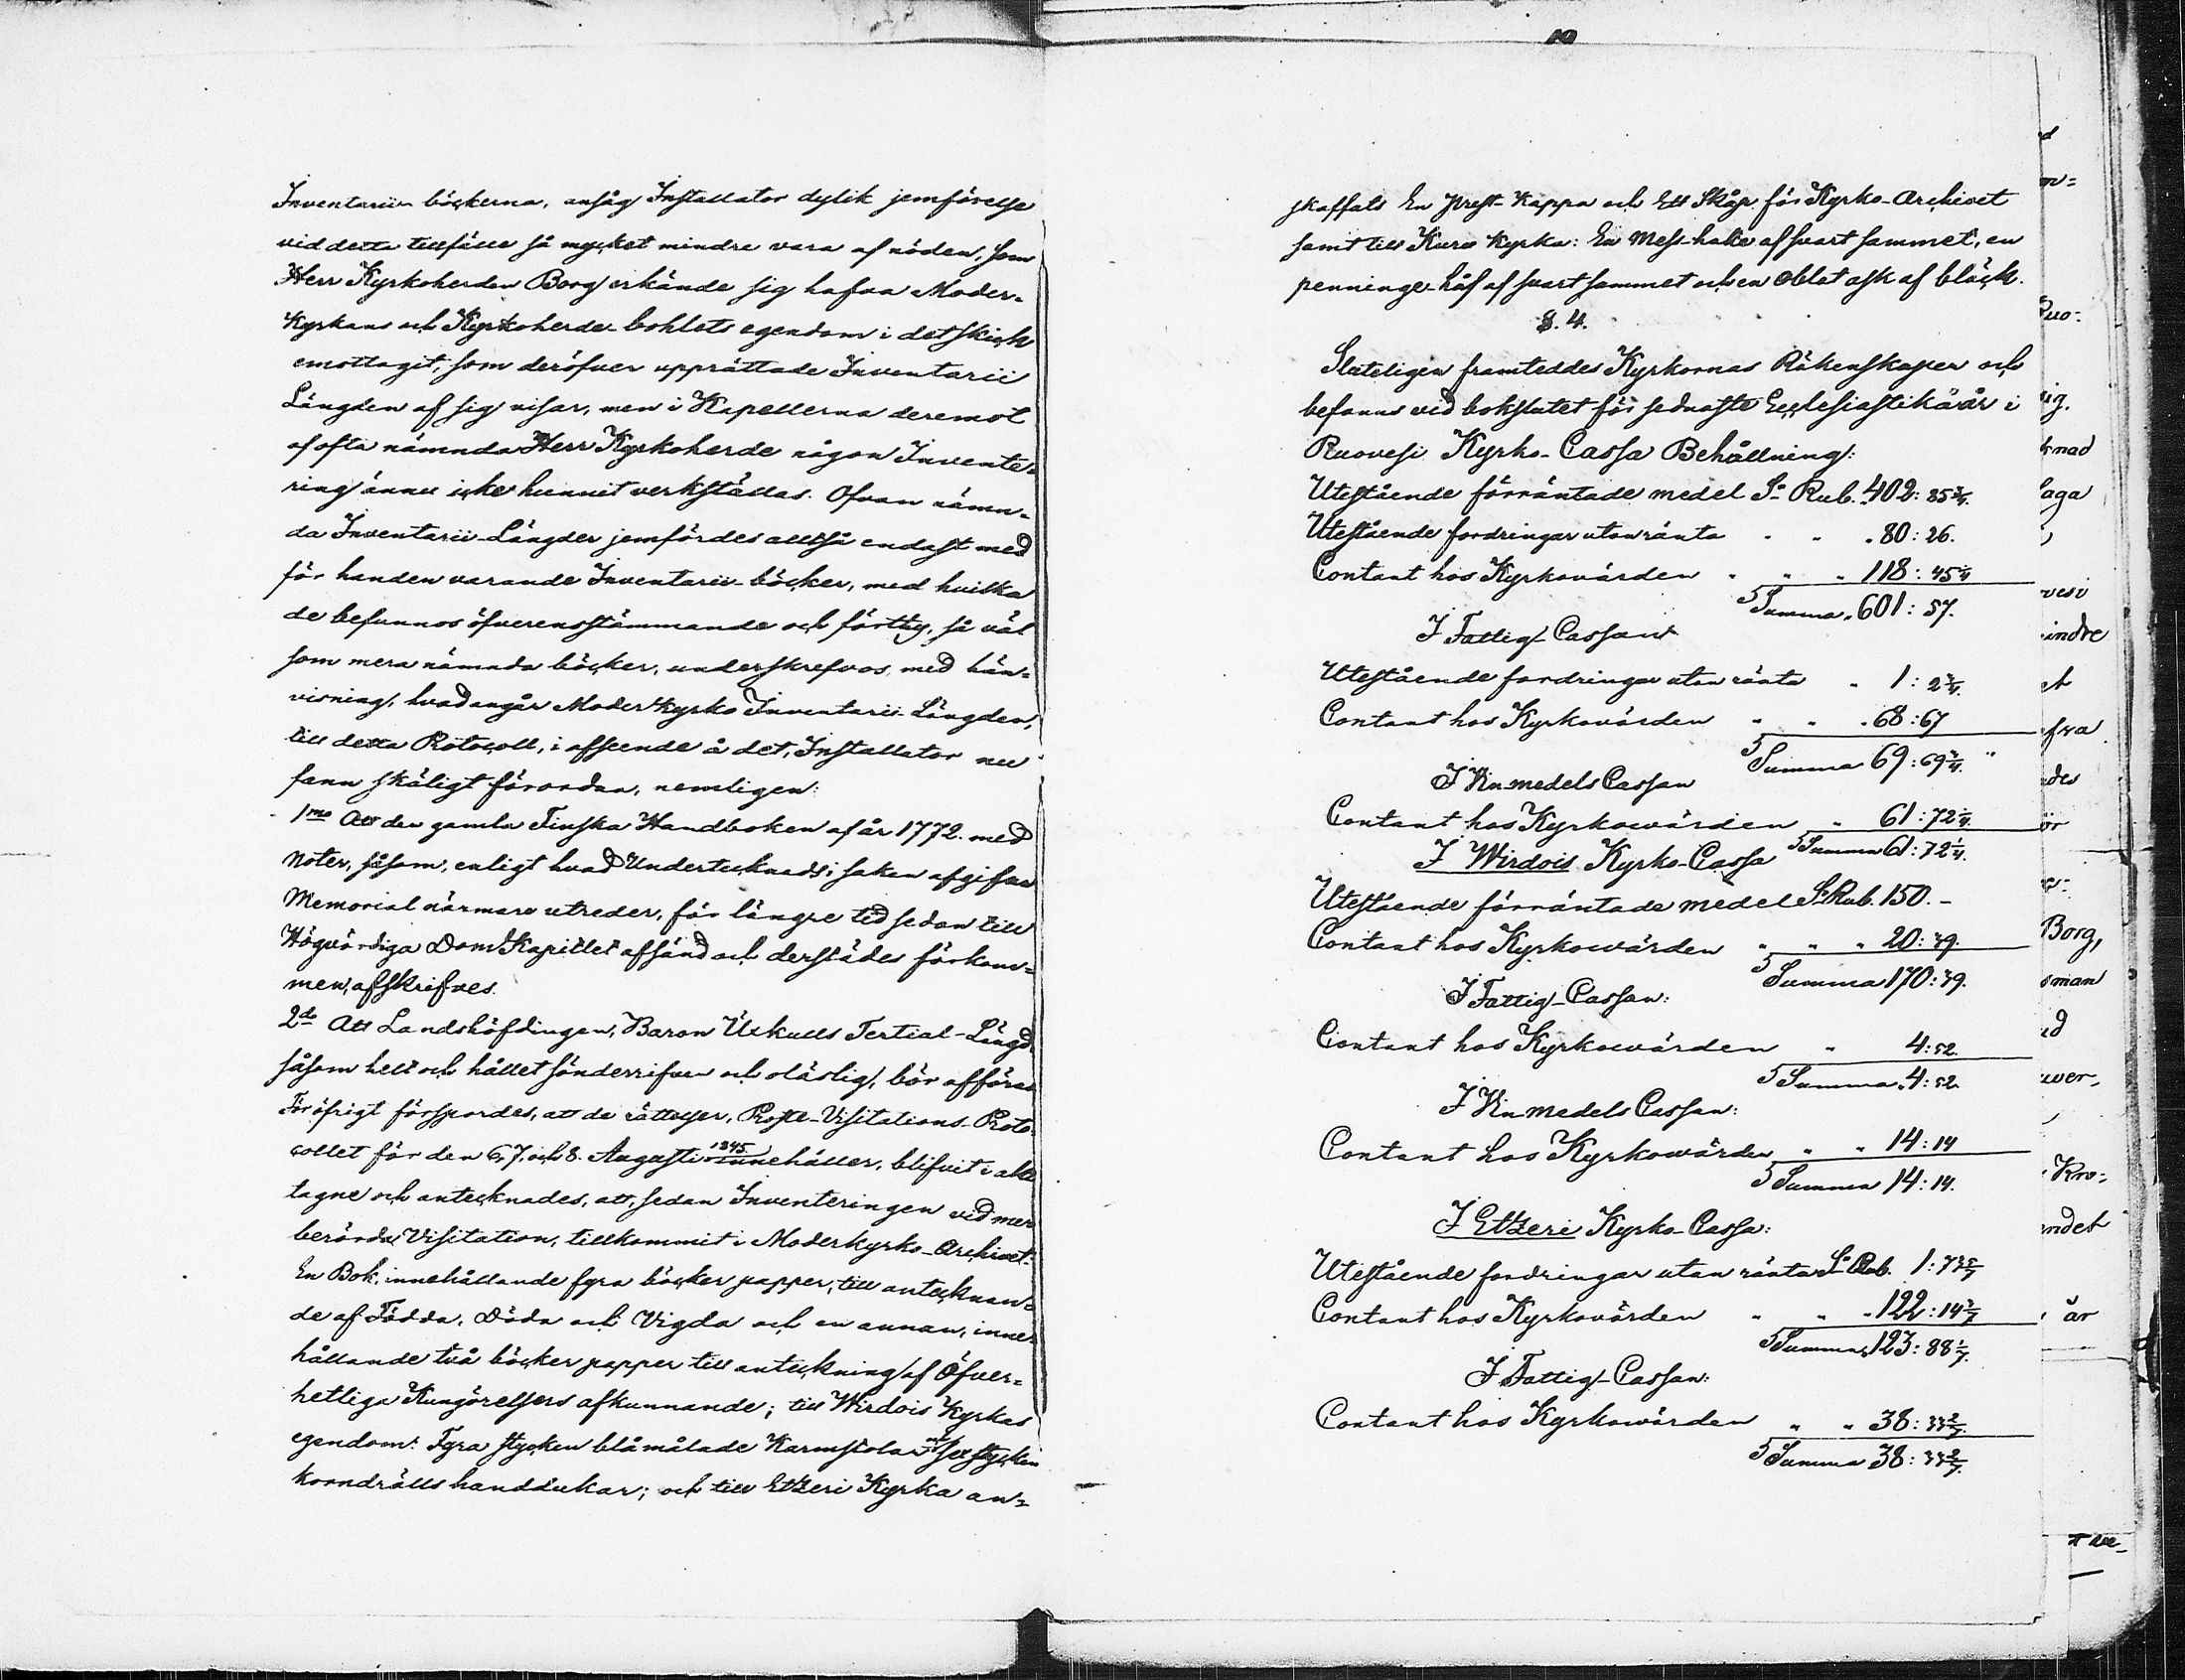 Inventarii böckerna, ansåg Installator dylik jemförelse
vid detta tillfälle så mycket mindre vara af nöden, som
Herr Kyrkoherden Borg erkände sig hafva Moder-
Kyrkans och Kyrkoherde-bohlets egendom i det skick
emottagit, som deröfver upprättade Inventarii
Längden af sig visar, men i Kapellerna deremot
af ofta nämnda Herr Kyrkoherde någon Invente-
ring ännu icke hunnit verkställas. Ofvan nämn-
da Inventarii-Längder jemfördes alltså endast med
för handen varande Inventarii-böcker, med hvilka
de befunnos öfverensstämmande och förthy, så väl
som mera nämnda böcker, underskrefvos, med hän-
visning, hvad angår Moderkyrko Inventarii-Längden,
till detta Protocoll, i afseende å det, Installator nu
fann skäligt förordna, nemligen:
1mo Att den gamla Finska Handboken af år 1772. med
Noter, såsom, enligt hvad Undertecknads i saken afgifne
Memorial närmare utreder, för längre tid sedan till
Högvördiga Dom Kapitlet afsänd och derstädes förkom-
men, afskrifves.
2do Att Landshöfdingen, Baron Üxkulls Tertial-Längd,
såsom helt och hållet sönderrifven och oläslig, bör afföras
För öfrigt förspordes, att de rättelser, Prosте-Visitations-Proto-
collet för den 6, 7, och 8. Augusti 1845 innehåller, blifvit i akt
tagne och antecknades, att, sedan Inventeringen vid mer
berörde Visitation, tillkommit i Moderkyrko-Archivet:
En Bok, innehållande fyra böcker papper, till antecknan-
de af Födda, Döda och Vigda och en annan, inne-
hållande två böcker papper till anteckning af Öfver-
hetliga Kungörelsers afkunnande; till Wirdois Kyrkas
egendom: Fyra stycken blåmålade Karmstolar och sex stycken
korndrälls handdukar; och till Etzeri Kyrka an-
skaffats En Prest-Kappa och Ett Skåp för Kyrko-Archivet
samt till Kuru Kyrka: En Mess-hake af svart sammet, en
penninge-håf af svart sammet och en oblat ask af bläck.
§. 4.
Sluteligen framteddes Kyrkornas Räkenskaper och
befanns vid bokslutet för sednaste Ecclesiastikår i
Ruovesi Kyrko-Cassa Behållning:
Utestående förräntade medel Sr Rub. 402: 85 3/4.
Utestående fordringar utan ränta " " " 80: 26.
Contant hos Kyrkovärden " " " 118: 45 1/4
Summa " 601: 57.
I Fattig-Cassan
Utestående fordringar utan ränta " 1: 2 3/4.
Contant hos Kyrkovärden " " " 68: 67
Summa 69: 69 3/4. "
I Kn-medels Cassan
Contant hos Kyrkowärden " 61: 72 1/4.
Summa 61: 72 1/4.
I Wirdois Kyrko-Cassa
Utestående förräntade medel Sr Rub. 150. -
Contant hos Kyrkowärden " " " 20: 39.
Summa 170: 39.
I Fattig-Cassan:
Contant hos Kyrkowärden " 4: 52.
Summa " 4: 52.
I Kn medels Cassan:
Contant hos Kyrkowärden " " 14: 14
Summa 14: 14.
I Etzeri Kyrko-Cassa:
Utestående fordringar utan ränta Sr Rub. 1: 73 5/7
Contant hos Kyrkovärden " " " 122: 14 3/7
Summa 123: 88 1/7.
I Fattig-Cassan:
Contant hos Kyrkowärden " " 38: 33 2/7.
Summa 38: 33 2/7.